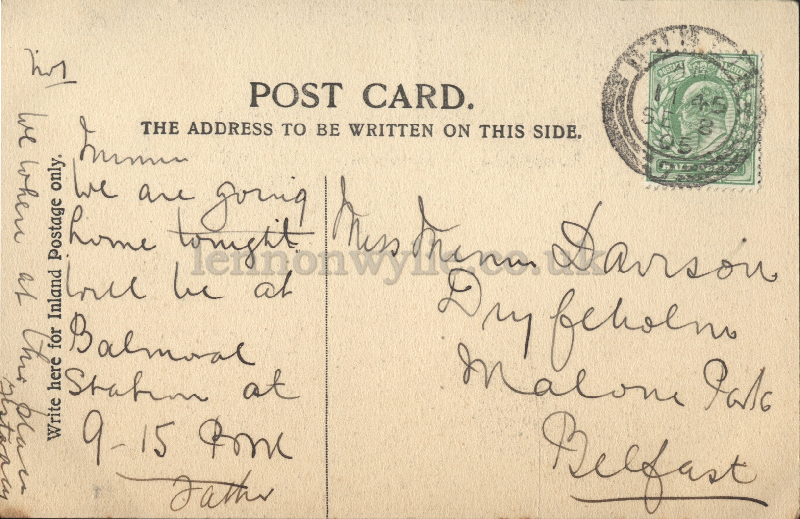 POST CARD.
THE ADDRESS TO BE WRITTEN ON THIS SIDE.
Write here for Inland Postage only.
Minnie
We are going
home tonight
will be at
Balmoral
Station at
9-15 P
Father
We when at this place
Miss Minnie Davison
Dryfeholm
Malone Park
Belfast
45
SE 8
05
lennonwylie.co.uk